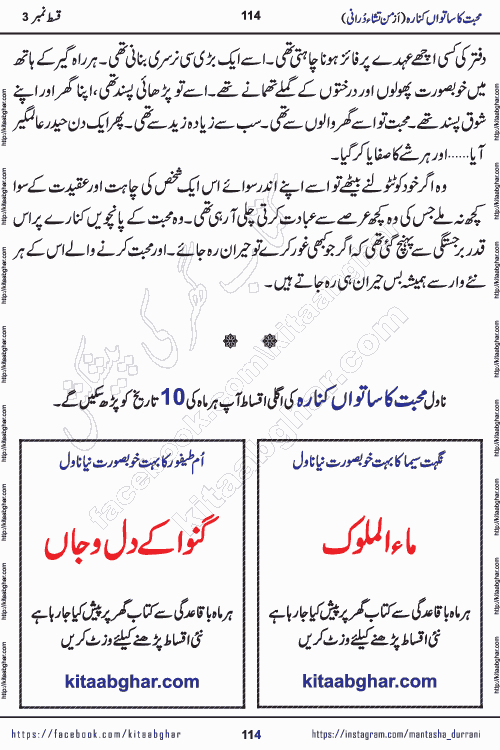 محبت کا ساتواں کنارہ (از من تشاء دُرانی)
114
قسط نمبر 3
دفتر کی کسی اچھے عہدے پر فائز ہونا چاہتی تھی۔ اسے ایک بڑی سی نرسری بنانی تھی۔ ہر راہ گیر کے ہاتھ
میں خوبصورت پھولوں اور درختوں کے گملے تھمانے تھے۔ اسے تو پڑھائی پسند تھی، اپنا گھر اور اپنے
شوق پسند تھے۔ محبت تو اسے گھر والوں سے تھی۔ سب سے زیادہ زید سے تھی۔ پھر ایک دن حیدر عالمگیر
آیا......اور ہر شے کا صفایا کر گیا۔
وہ اگر خود کو ٹٹولنے بیٹھے تو اسے اپنے اندر سوائے اس ایک شخص کی چاہت اور عقیدت کے سوا
کچھ نہ ملے جس کی وہ کچھ عرصے سے عبادت کرتی چلی آ رہی تھی۔ وہ محبت کے پانچویں کنارے پر اس
قدر برجستگی سے پہنچ گئی تھی کہ اگر جو کبھی غور کرے تو حیران رہ جائے۔ اور محبت کرنے والے اس کے ہر
نئے وار سے ہمیشہ بس حیران ہی رہ جاتے ہیں۔
ناول محبت کا ساتواں کنارہ کی اگلی اقساط آپ ہر ماہ کی 10 تاریخ کو پڑھ سکیں گے۔
نگہت سیما کا بہت خوبصورت نیا ناول
ماء الملوک
ہر ماہ باقاعدگی سے کتاب گھر پر پیش کیا جا رہا ہے
نئی اقساط پڑھنے کیلئے وزٹ کریں
kitaabghar.com
اُم طیفور کا بہت خوبصورت نیا ناول
گنوا کے دل و جاں
ہر ماہ باقاعدگی سے کتاب گھر پر پیش کیا جا رہا ہے
نئی اقساط پڑھنے کیلئے وزٹ کریں
kitaabghar.com
کتاب گھر کی پیشکش
kitaabghar.com
http://kitaabghar.com
https://facebook.com/kitaabghar
114
https://instagram.com/mantasha_durrani